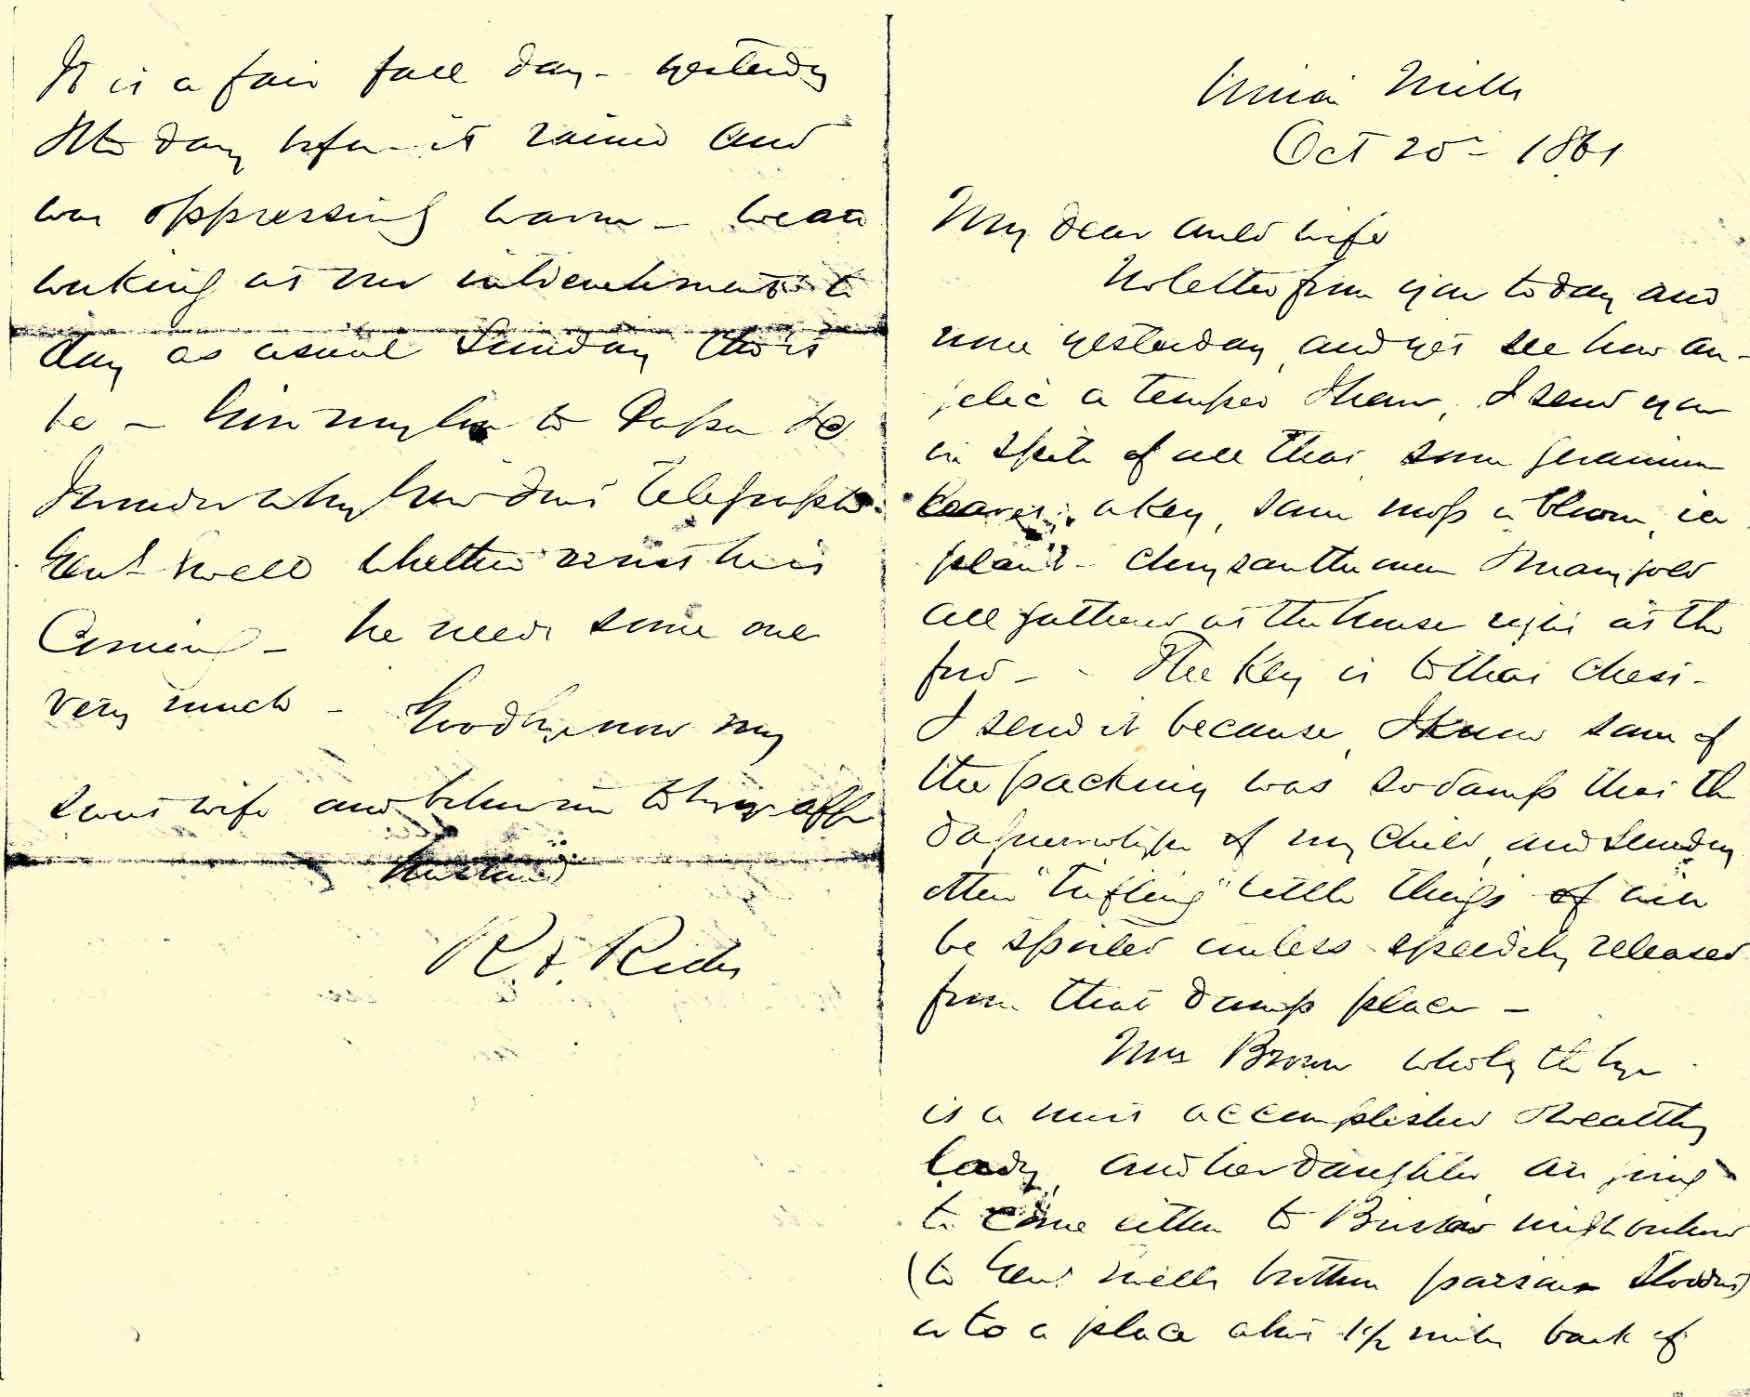 Union Mills
Oct 20 - 1861
My dear auld wife
No letter from you today and
none yesterday, and yet see how an-
gelic a temper I have, I send you
in spite of all that some geranium
leaves, a key, some moss in bloom, ice
plant - chrysanthemum & marygold
all gathered at the house right at the
ford - - The Key is to that chest -
I send it because, I know some of
the packing was so damp that the
daguerrotype of my child, and sundry
other "trifling" little things of will
be spoiled unless speedily released
from that damp place -
Mrs Brown who by the bye
is a most accomplished & wealthy
lady, and her daughter are going
to come either to neighborhood
(to Genl Ewells brother parson Stoddert)
or to a place about 1 1/2 miles back of
It is a fair fall day - yesterday
& the day before it rained and
was oppressing warm - we are
working at our intrenchments to
day as usual Sunday tho it
be - Give my love to Papa &c
I wonder why he dont telegraph
Genl Ewell whether or not he is
Coming - he needs some one
very much - Goodbye now my
sweet wife and believe me to be yr aff
husband
R Ricks